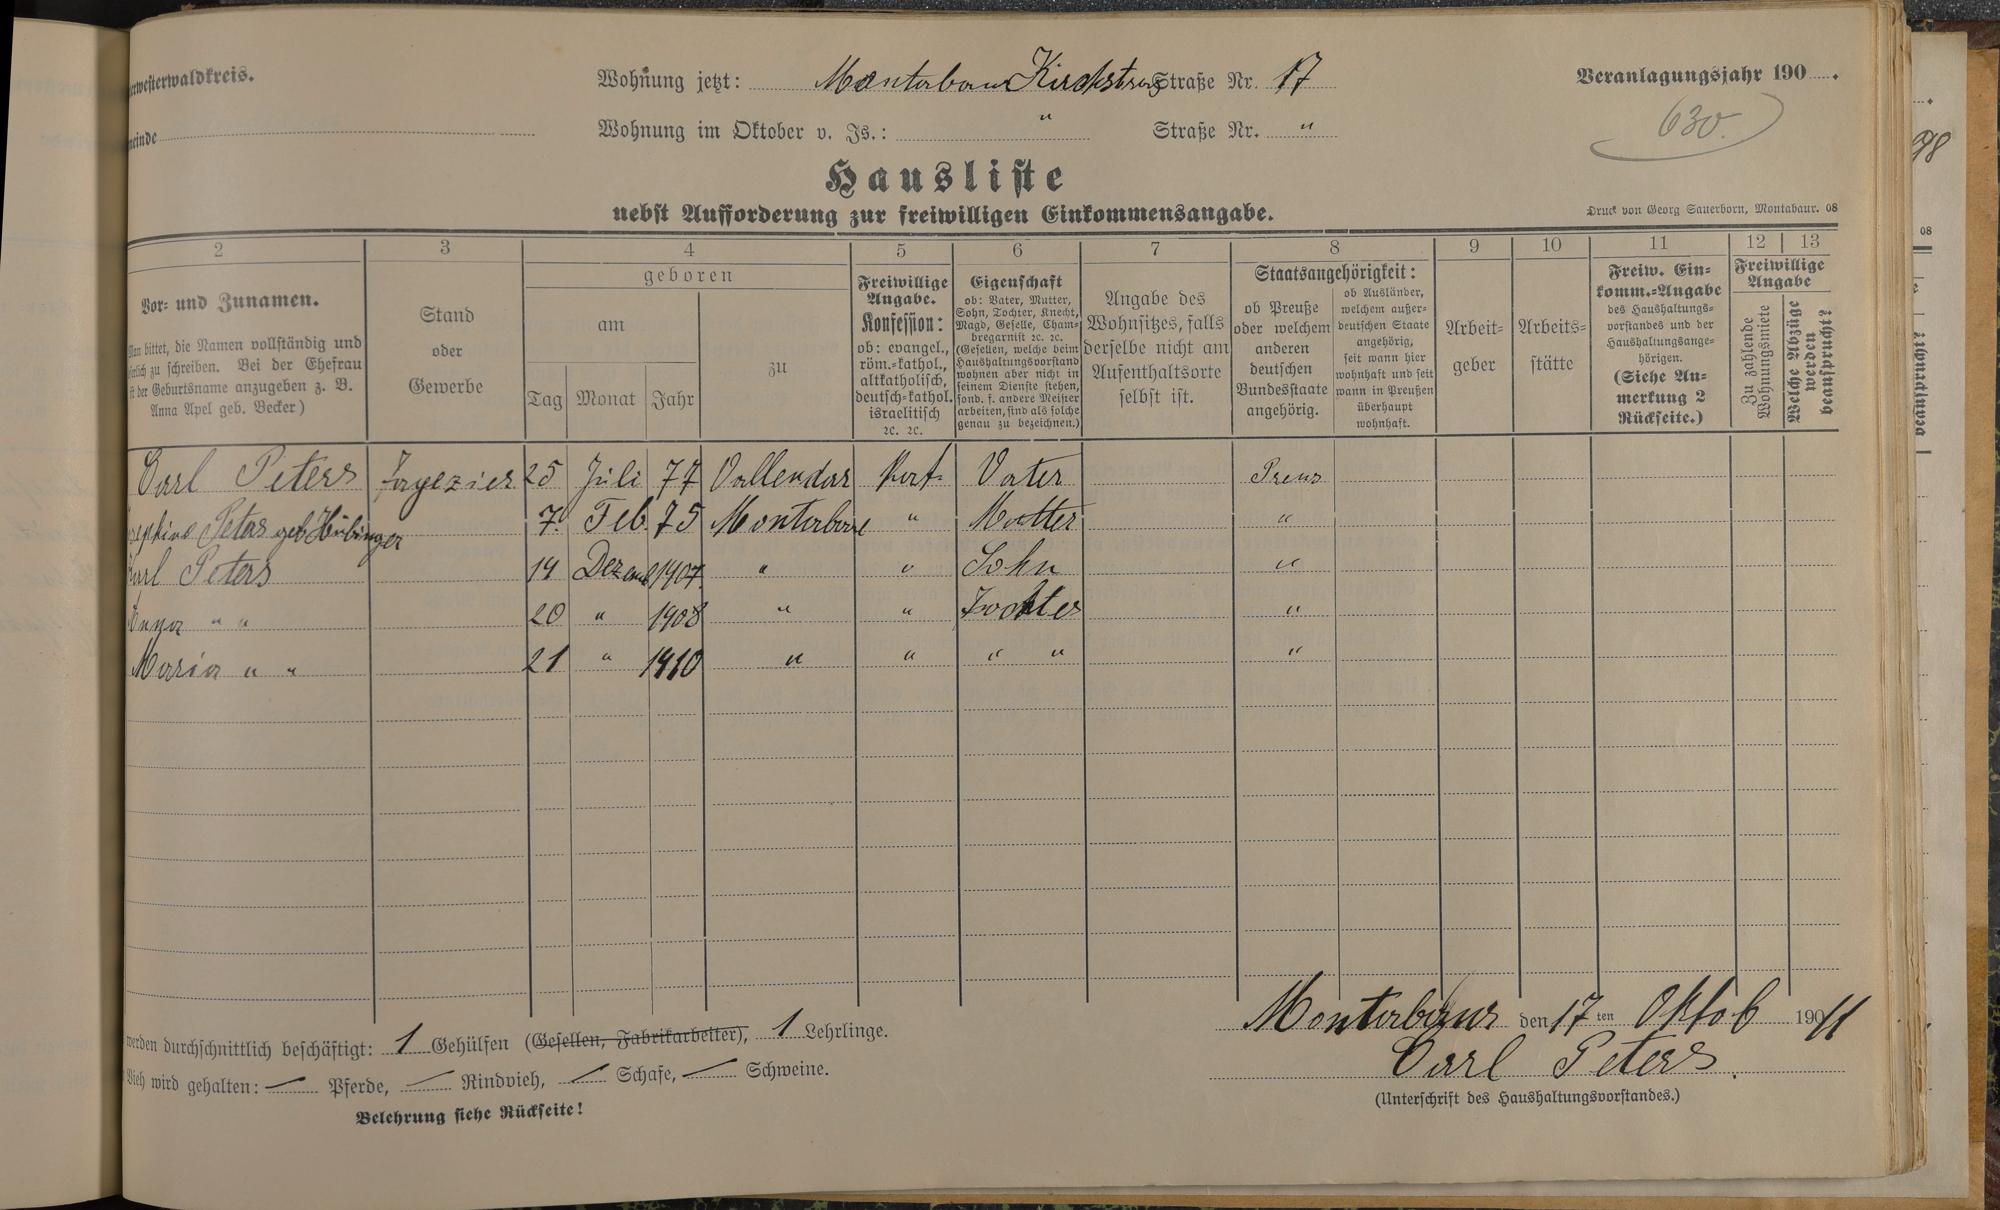 rwesterwaldkreis.
Wohnung jetzt: Montabaur Kirchstras Straße Nr. 17
Veranlagungsjahr 190 .
meinde
Wohnung im Oktober v. Js.: " Straße Nr. "
630.
98
Hausliste
nebst Aufforderung zur freiwilligen Einkommensangabe.
Druck von Georg Sauerborn, Montabaur. 08
08
2 3 4 5 6 7 8 9 10 11 12 13
Vor- und Zunamen.
Man bittet, die Namen vollständig und
serlich zu schreiben. Bei der Ehefrau
ist der Geburtsname anzugeben z. B.
Anna Apel geb. Becker)
Stand
oder
Gewerbe
geboren
am
Tag Monat Jahr
zu
Freiwillige
Angabe.
Konfession:
ob: evangel.,
röm.-kathol.,
altkatholisch,
deutsch-kathol.
israelitisch
ꝛc. ꝛc.
Eigenschaft
ob: Vater, Mutter,
Sohn, Tochter, Knecht,
Magd, Geselle, Cham-
bregarnist ꝛc. ꝛc.
(Gesellen, welche beim
Haushaltungsvorstand
wohnen aber nicht in
seinem Dienste stehen,
sond. f. andere Meister
arbeiten, sind als solche
genau zu bezeichnen.)
Angabe des
Wohnsitzes, falls
derselbe nicht am
Aufenthaltsorte
selbst ist.
Staatsangehörigkeit:
ob Preuße
oder welchem
anderen
deutschen
Bundesstaate
angehörig.
ob Ausländer,
welchem außer-
deutschen Staate
angehörig,
seit wann hier
wohnhaft und seit
wann in Preußen
überhaupt
wohnhaft.
Arbeit-
geber
Arbeits-
stätte
Freiw. Ein-
komm.-Angabe
des Haushaltungs-
vorstandes und der
Haushaltungsange-
hörigen.
(Siehe An-
merkung 2
Rückseite.)
Freiwillige
Angabe
Zu zahlende
Wohnungsmiete
Welche Abzüge
werden
beansprucht?
beansprucht?
Carl Peters 25 Juli 77 Vallendar Kat. Vater Preus
Peters geb Hübinger 7. Feb. 75 Montabaur " Mutter "
Karl Peters 14 Dezemb 1907. " " Sohn "
" " 20 " 1908 " " Tochter "
Maria " " 21 " 1910 " " " " "
Montabaur den 17 ten Oktob 19011
werden durchschnittlich beschäftigt: 1 Gehülfen (Gesellen, Fabrikarbeiter), 1 Lehrlinge.
Carl Peters.
Vieh wird gehalten: — Pferde, — Rindvieh, — Schafe, — Schweine.
(Unterschrift des Haushaltungsvorstandes.)
Belehrung siehe Rückseite!